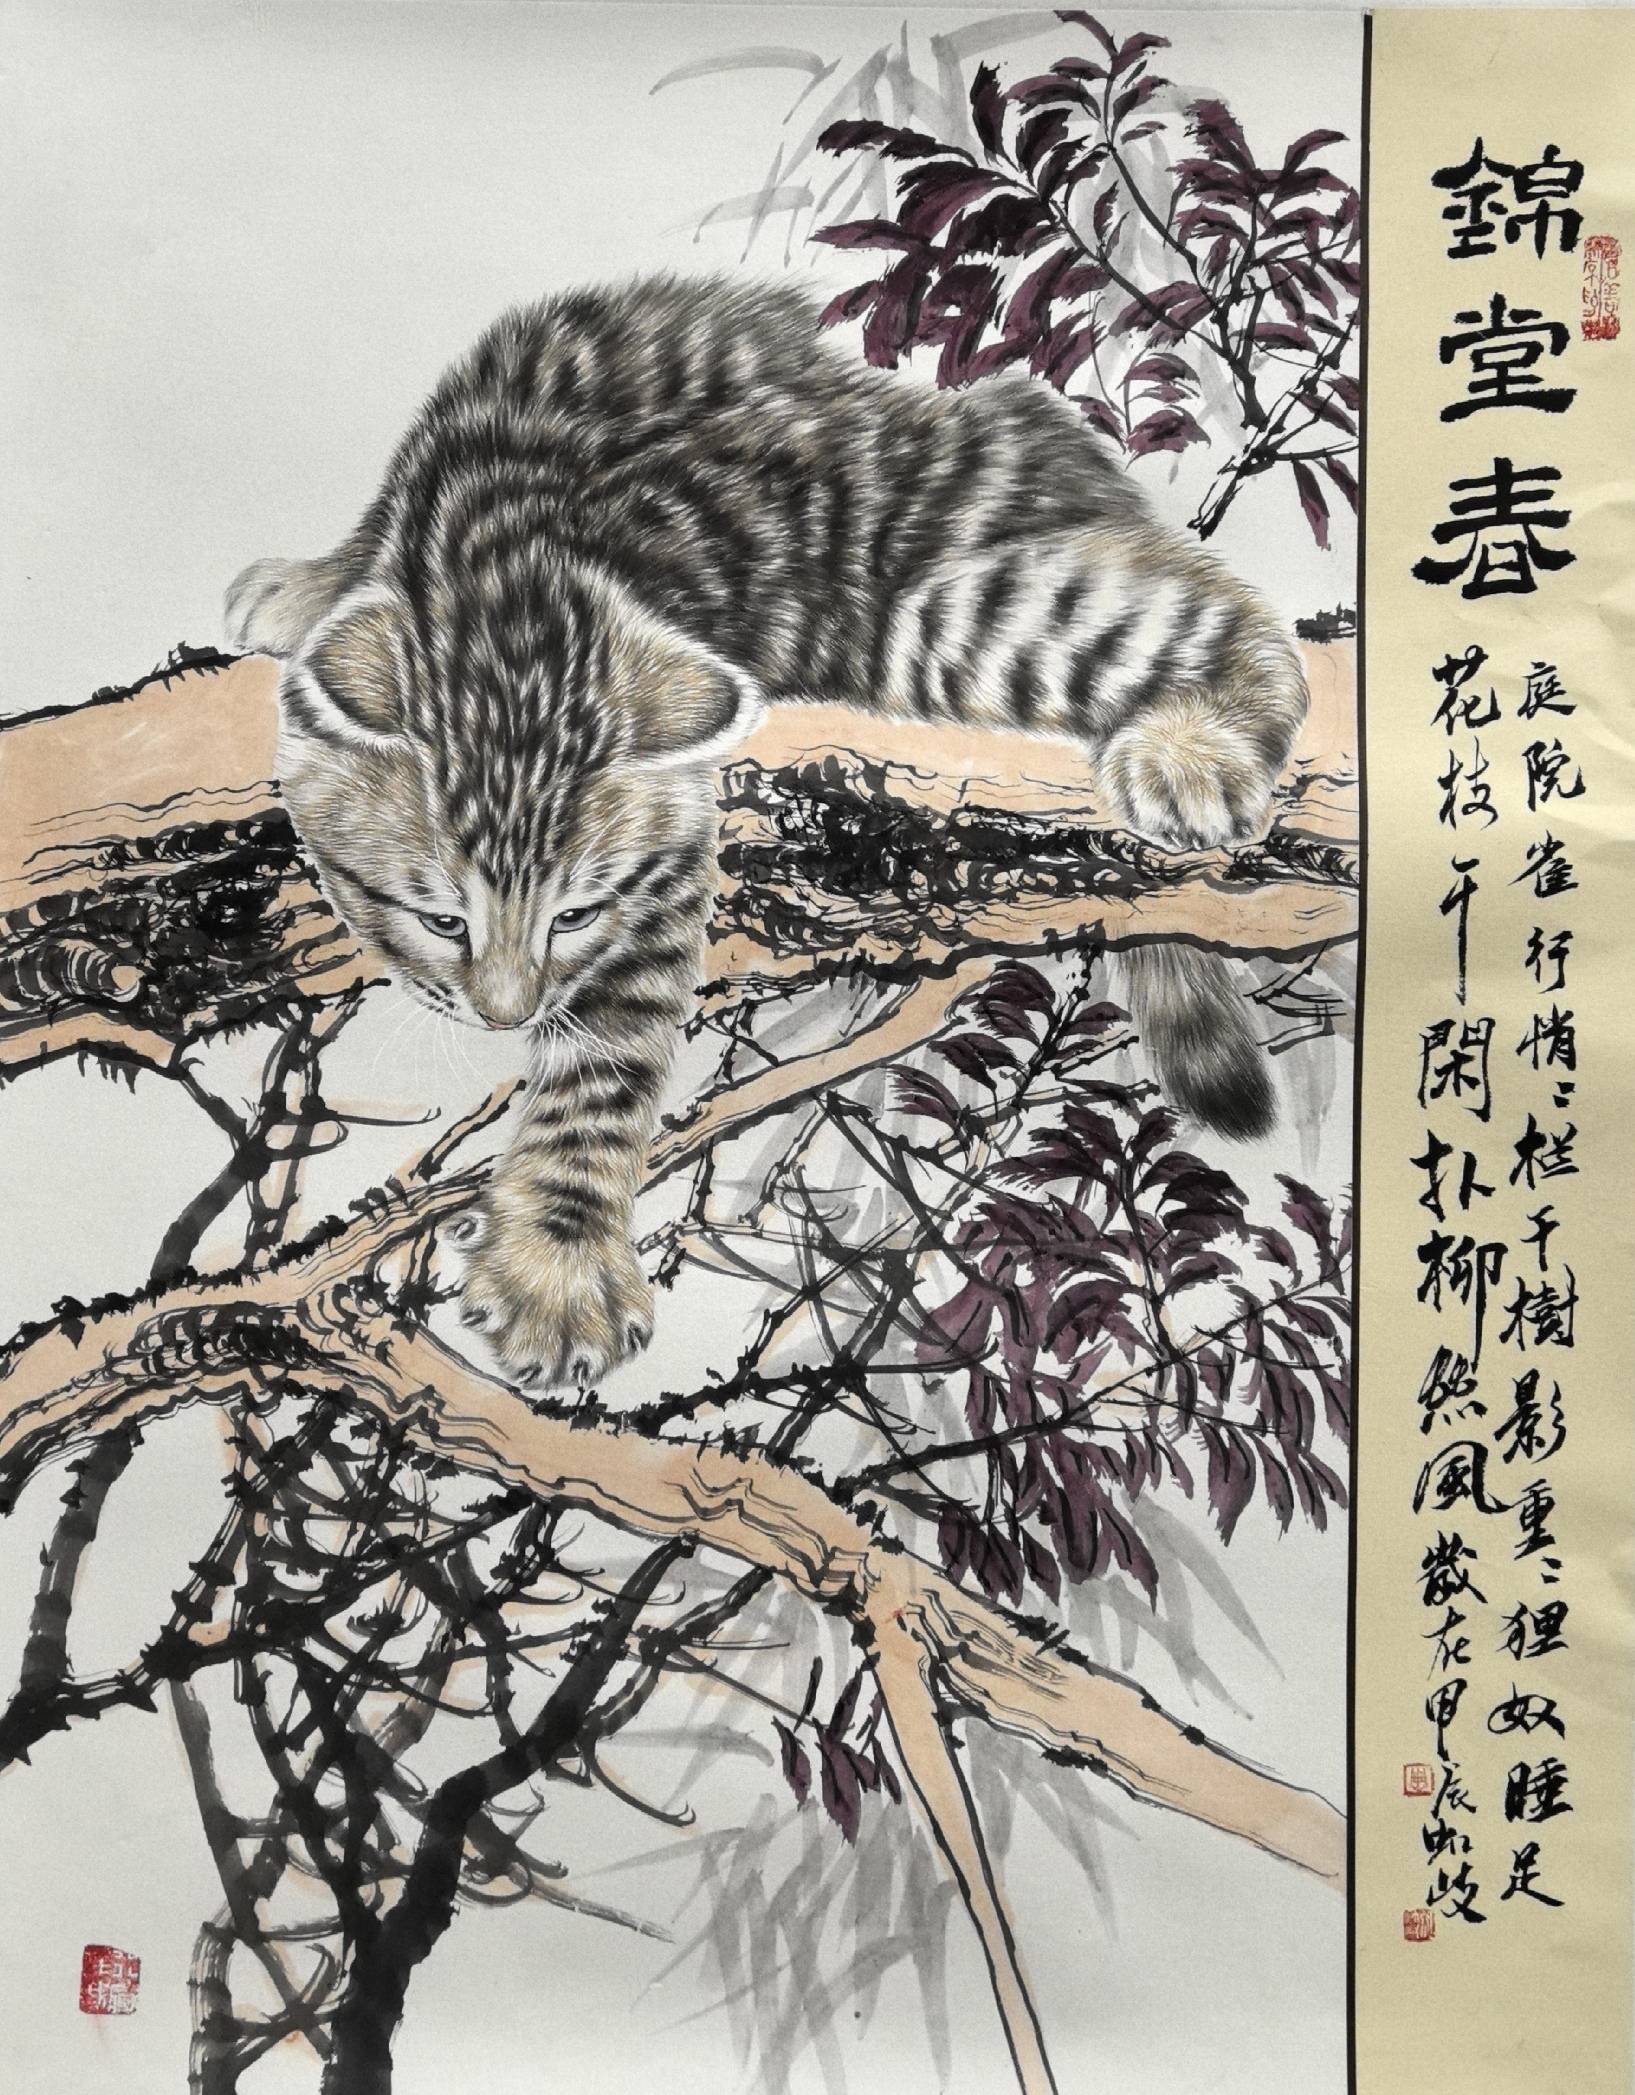 錦堂春
庭院雀行悄〻栏干樹影重〻狸奴睡足
花枝午閑扑柳絮風
歲在甲辰虹岐